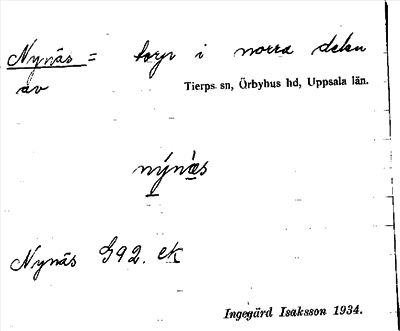 Nynäs = torp i norra delen
av Tierps sn, Örbyhus hd, Uppsala län.
nýnæs
Nynäs G92. ek
Ingegärd Isaksson 1934.